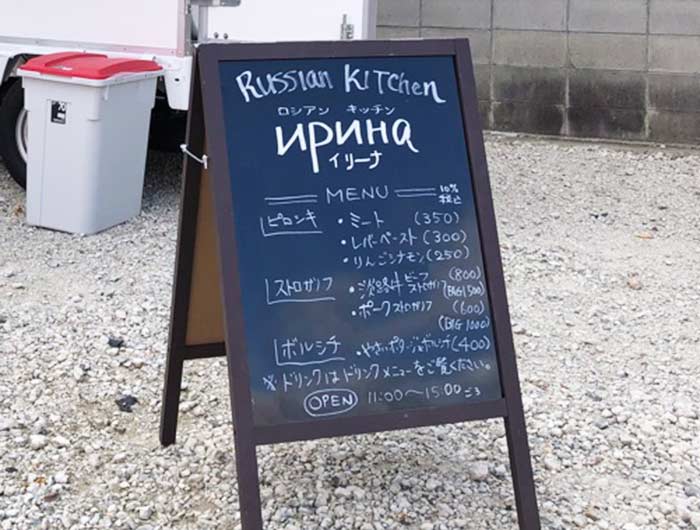 RUSSIAN KITCHEN
ロシアン キッチン
ирина
イリーナ
MENU 10%税込
ピロシキ ・ミート (350)
・レバーペースト (300)
・りんごシナモン (250)
ストロガノフ ・淡路牛ビーフストロガノフ (800)
(BIG1500)
・ポークストロガノフ (600)
(BIG 1000)
ボルシチ ・やさいポタージュボルシチ (400)
※ドリンクはドリンクメニューをご覧ください。
OPEN 11:00〜15:00ごろ